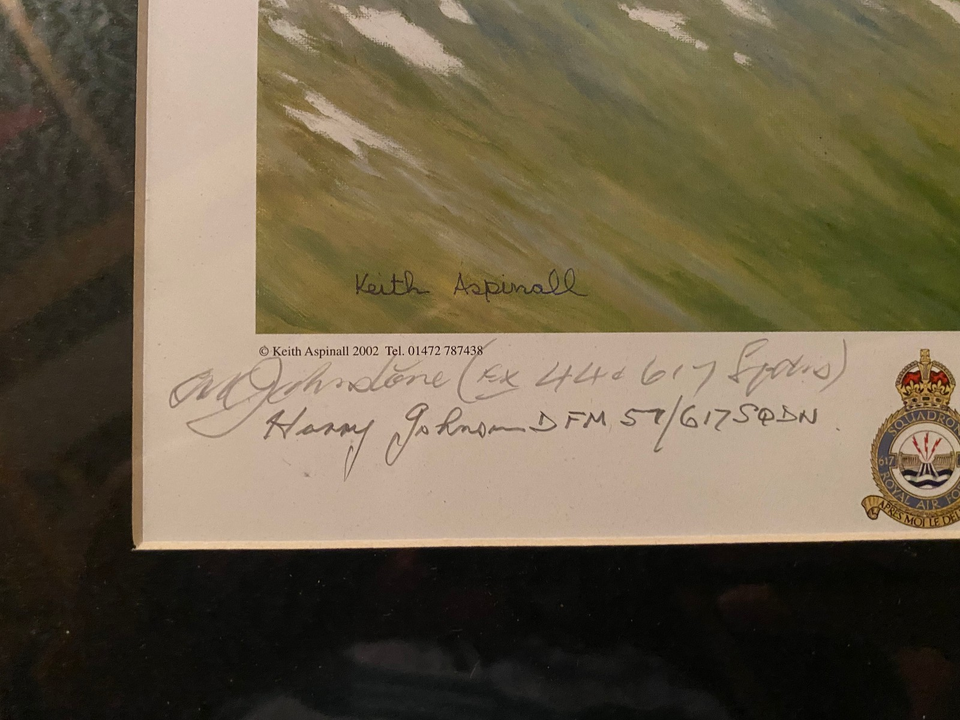 Keith Aspinall
© Keith Aspinall 2002 Tel. 01472 787438
Johnstone (Ex 44 & 617 Sqdns)
Harry Johnson DFM 57/617 SQDN.
SQUADRON
617
ROYAL AIR FO
APRES MOI LE DEL